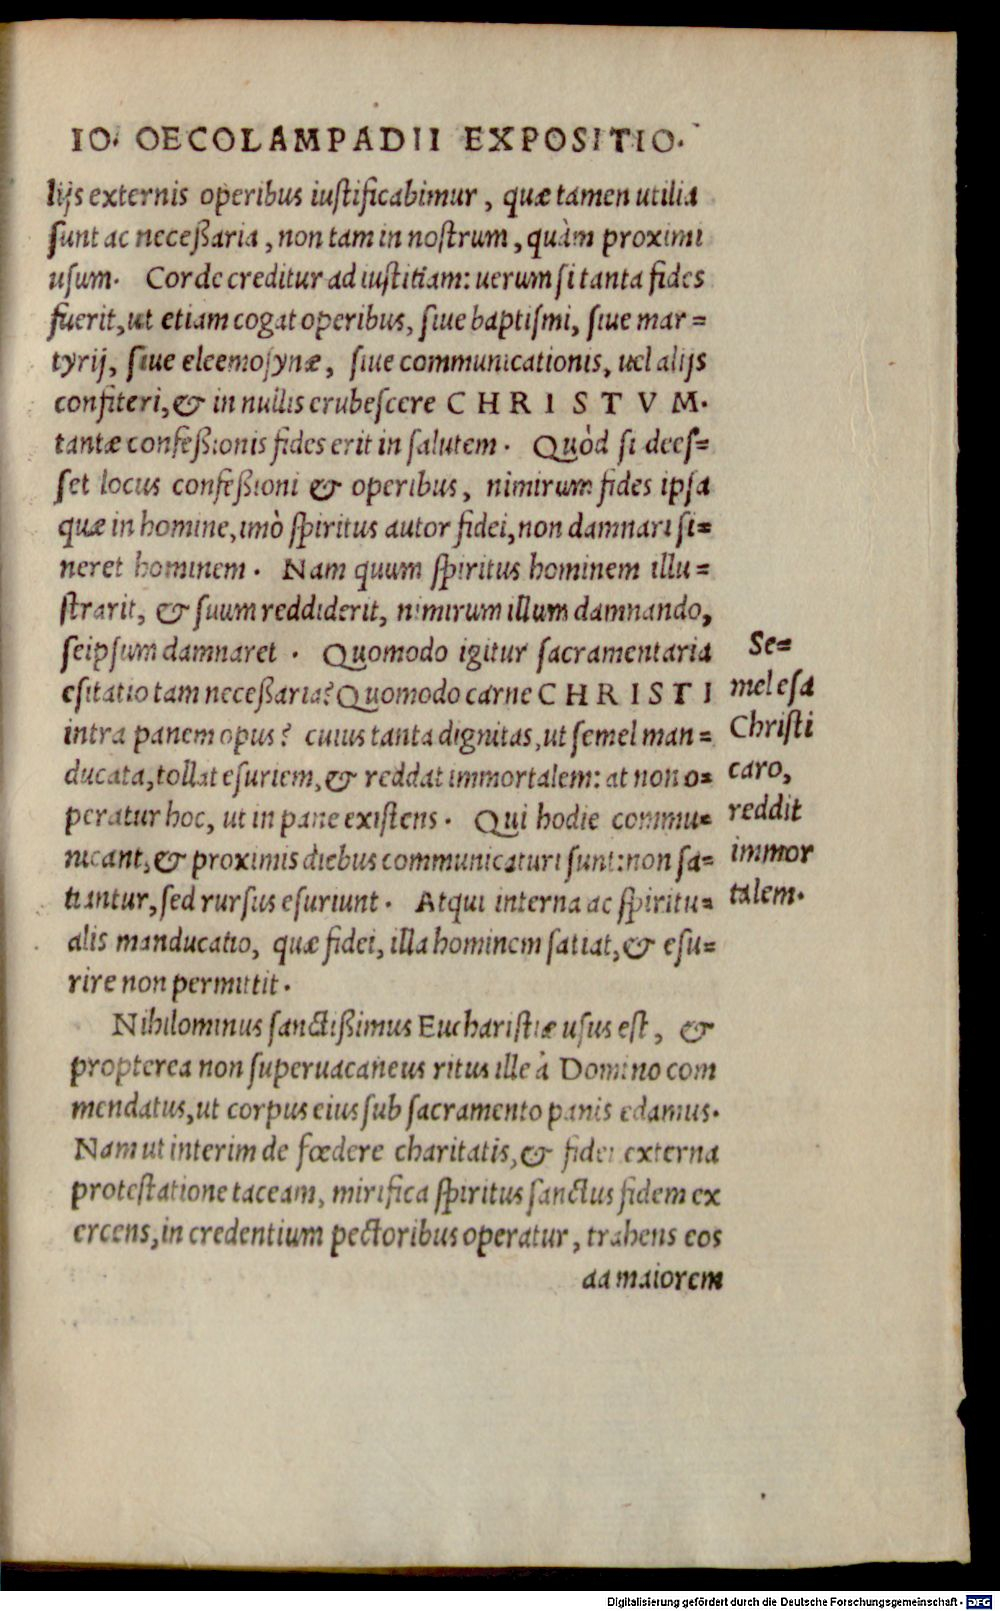 IO. OECOLAMPADII EXPOSITIO.
lijs externis operibus iustificabimur, quæ tamen utilia
sunt ac neceßaria, non tam in nostrum, quàm proximi
usum. Corde creditur ad iustitiam: uerum si tanta fides
fuerit, ut etiam cogat operibus, siue baptismi, siue mar=
tyrij, siue eleemosynæ, siue communicationis, uel alijs
confiteri, & in nullis erubescere CHRISTVM.
tantæ confeßionis fides erit in salutem. Quòd si dees=
set locus confeßioni & operibus, nimirum fides ipsa
quæ in homine, imò spiritus autor fidei, non damnari si=
neret hominem. Nam quum spiritus hominem illu=
strarit, & suum reddiderit, nimirum illum damnando,
seipsum damnaret. Quomodo igitur sacramentaria
esitatio tam neceßaria? Quomodo carne CHRISTI
intra panem opus? cuius tanta dignitas, ut semel man=
ducata, tollat esuriem, & reddat immortalem: at non o=
peratur hoc, ut in pane existens. Qui hodie commu=
nicant, & proximis diebus communicaturi sunt: non sa=
tiantur, sed rursus esuriunt. Atqui interna ac spiritu=
alis manducatio, quæ fidei, illa hominem satiat, & esu=
rire non permittit.
Nihilominus sanctißimus Eucharistiæ usus est, &
propterea non superuacaneus ritus ille à Domino com
mendatus, ut corpus eius sub sacramento panis edamus.
Nam ut interim de fœdere charitatis, & fidei externa
protestatione taceam, mirifica spiritus sanctus fidem ex
ercens, in credentium pectoribus operatur, trahens eos
ad maiorem
Se=
mel esa
Christi
caro,
reddit
immor
talem.
Digitalisierung gefördert durch die Deutsche Forschungsgemeinschaft - DFG